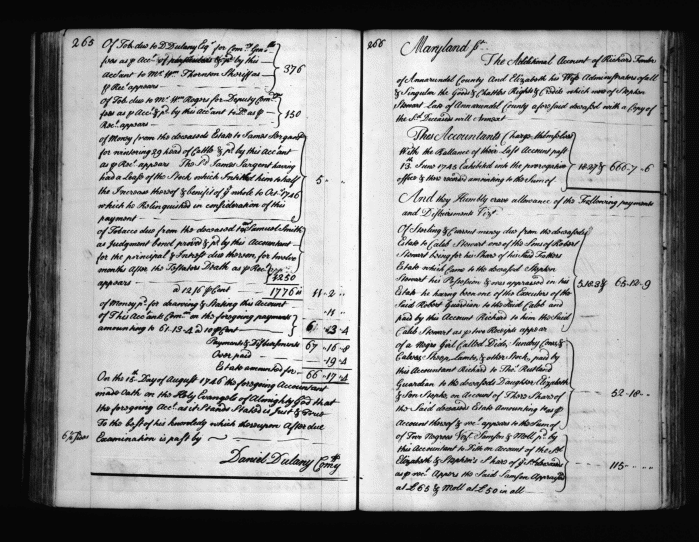 265
Of Tob. due to D. Dulany Esqr. for Comy. Genls.
fees as p Acct. of & pd. by this
Accountant to Mr. Wm. Thornton Sheriff as
p Rect. appears 376
Of Tob. due to Mr. Wm. Rogers for Deputy Comys.
fees as p Acct. & pd. by this Accountant to Do. as p
Rect. appears 150
of Money from the deceaseds Estate to James Sargent
for wintering 29 head of Cattle & pd. by this Accot
as p Rect. appears The sd. James Sargent having
had a Lease of the Stock which Intitled him to half
the Increase thereof & benefit of ye. whole to Octr. 1746
which he Relinquished in consideration of this
payment 5 " "
of Tobacco due from the deceased to Samuel Smith
as Judgment bond proved & pd. by this Accountant
for the principal & Interest due thereon for twelve
months After the Testators Death as p Rect.
appears 1250
a 12/6 p Cent 1776 is 11 - 2 "
of Money pd. for drawing & Stating this Account " 11 "
of This Accots. Comn. on the foregoing payments
amounting to 61.13.4 a 10 p Cent 61 - 13 - 4
Payments & Disbursments 67 - 16 - 8
Over paid - 19 - 4
Estate amounted for 66 - 17 - 4
On the 15th. Day of August 1746 the foregoing Accountant
made Oath on the Holy Evangels of Almighty God that
the foregoing Acct. as it Stands Stated is Just & True
To the best of his knowledge which thereupon After due
Examination is past by
Daniel Dulany Comy
266
Maryland Ss.
The Additional Account of Richard
of Annarundel County And Elizabeth his Wife Administrators of all
& Singular the Goods & Chattles Rights & Credits which were of Stephen
Stewart late of Annarundel County aforesaid deceased with a Copy of
the Sd. Deceaseds will Annext
These Accountants Charge themselves
With the Ballance of their Last Account past
13th. June 1743 Exhibited into the prerogative
office & there record amounting to the Sum of 666 - 7 - 6
And they Humbly crave allowance of the Following payments
and Disbursments Vizt.
Of Sterling & Current money due from the deceaseds
Estate to Caleb Stewart one of the Sons of Robert
Stewart being for his Share of his sd. Fathers
Estate which came to the deceased Stephen
Stewart his Possession & was appraised in his
Estate he having been one of the Executors of the
Said Robert Guardian to the said Caleb and
paid by this Account Richard to him the Said
Caleb Stewart as p two Receipts appear 65 - 12 - 9
of a Negro Girl Called Dide, Sundry Cows &
Calves, Sheep, Lambs, & other Stock, paid by
this Accountant Richard to Thos. Rutland
Guardian to the deceaseds Daughter Elizabeth
& Son Stephn. on Account of There Share of
the Said deceased Estate Amounting to as p
Account thereof & rect. appears to the Sum of 52 - 18 -
of Two Negroes Vizt. Samson & Moll pd. by
this Accountant to on Account of the Sd.
Elizabeth & Stephen's Share of ye. Sd. deceaseds
as p rect. Appears the Said Samson Appraised
at £65 & Moll at £50 in all 115 - " "